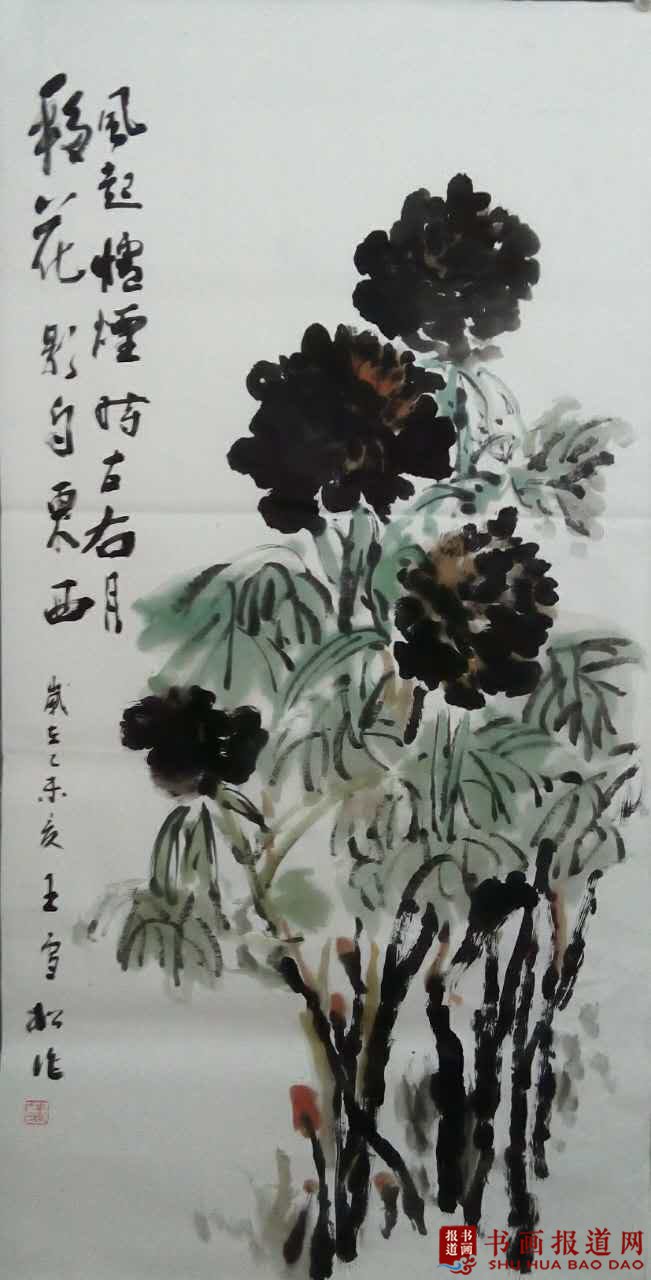 風起爐煙時左右月
移花影自東西
歲在乙未夏 王雪松作
书画
报道
书画报道网
SHU HUA BAO DAO